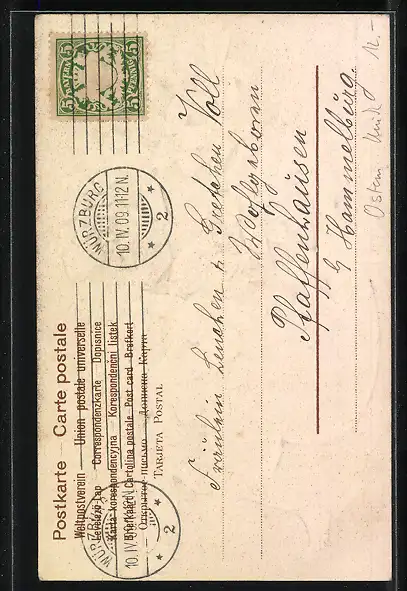 Postkarte — Carte postale
Weltpostverein — Union postale universelle
Levelező-Lap — Correspondenzkarte — Dopisnice
Karta korespondencyjna — Korespondenční listek
Briefkaart — Cartolina postale — Post card — Brefkort
Открытое письмо — Дописна Карта
TARJETA POSTAL
BAYERN
5 5
5 PFENNIG 5
WÜRZBURG
10.IV.09.11-12N.
2
WÜRZBURG
10.IV
2
Fräulein Lenchen & Gretchen Voll
Pfaffenhausen
b/ Hammelburg.
Ostern